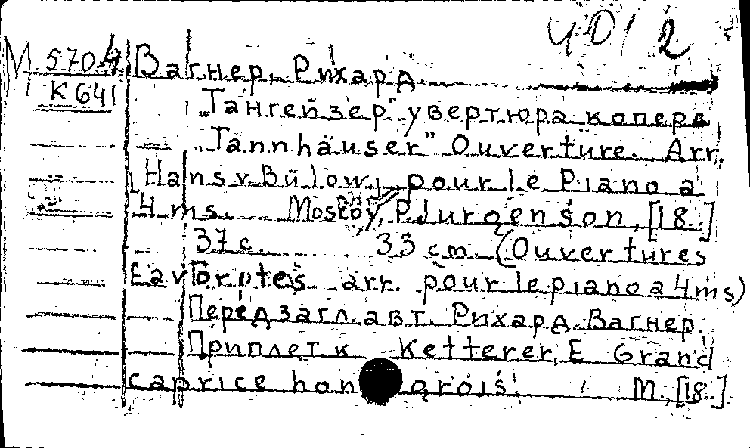 40/2
М 5704 Вагнер, Рихард.
К 641
„Тангейзер" увертюра к опере
„Tannhäuser" Ouverture. Arr.
Hans v. Bülow, pour le Piano a
4 ms. Moscou, P. Jurgenson, [18.]
37 с. 33 см. (Ouvertures
favorites arr. pour le piano a 4ms)
Перед загл. авт. Рихард Вагнер.
Приплет к Ketterer, E. Grand
caprice hongrois. М., [18.]